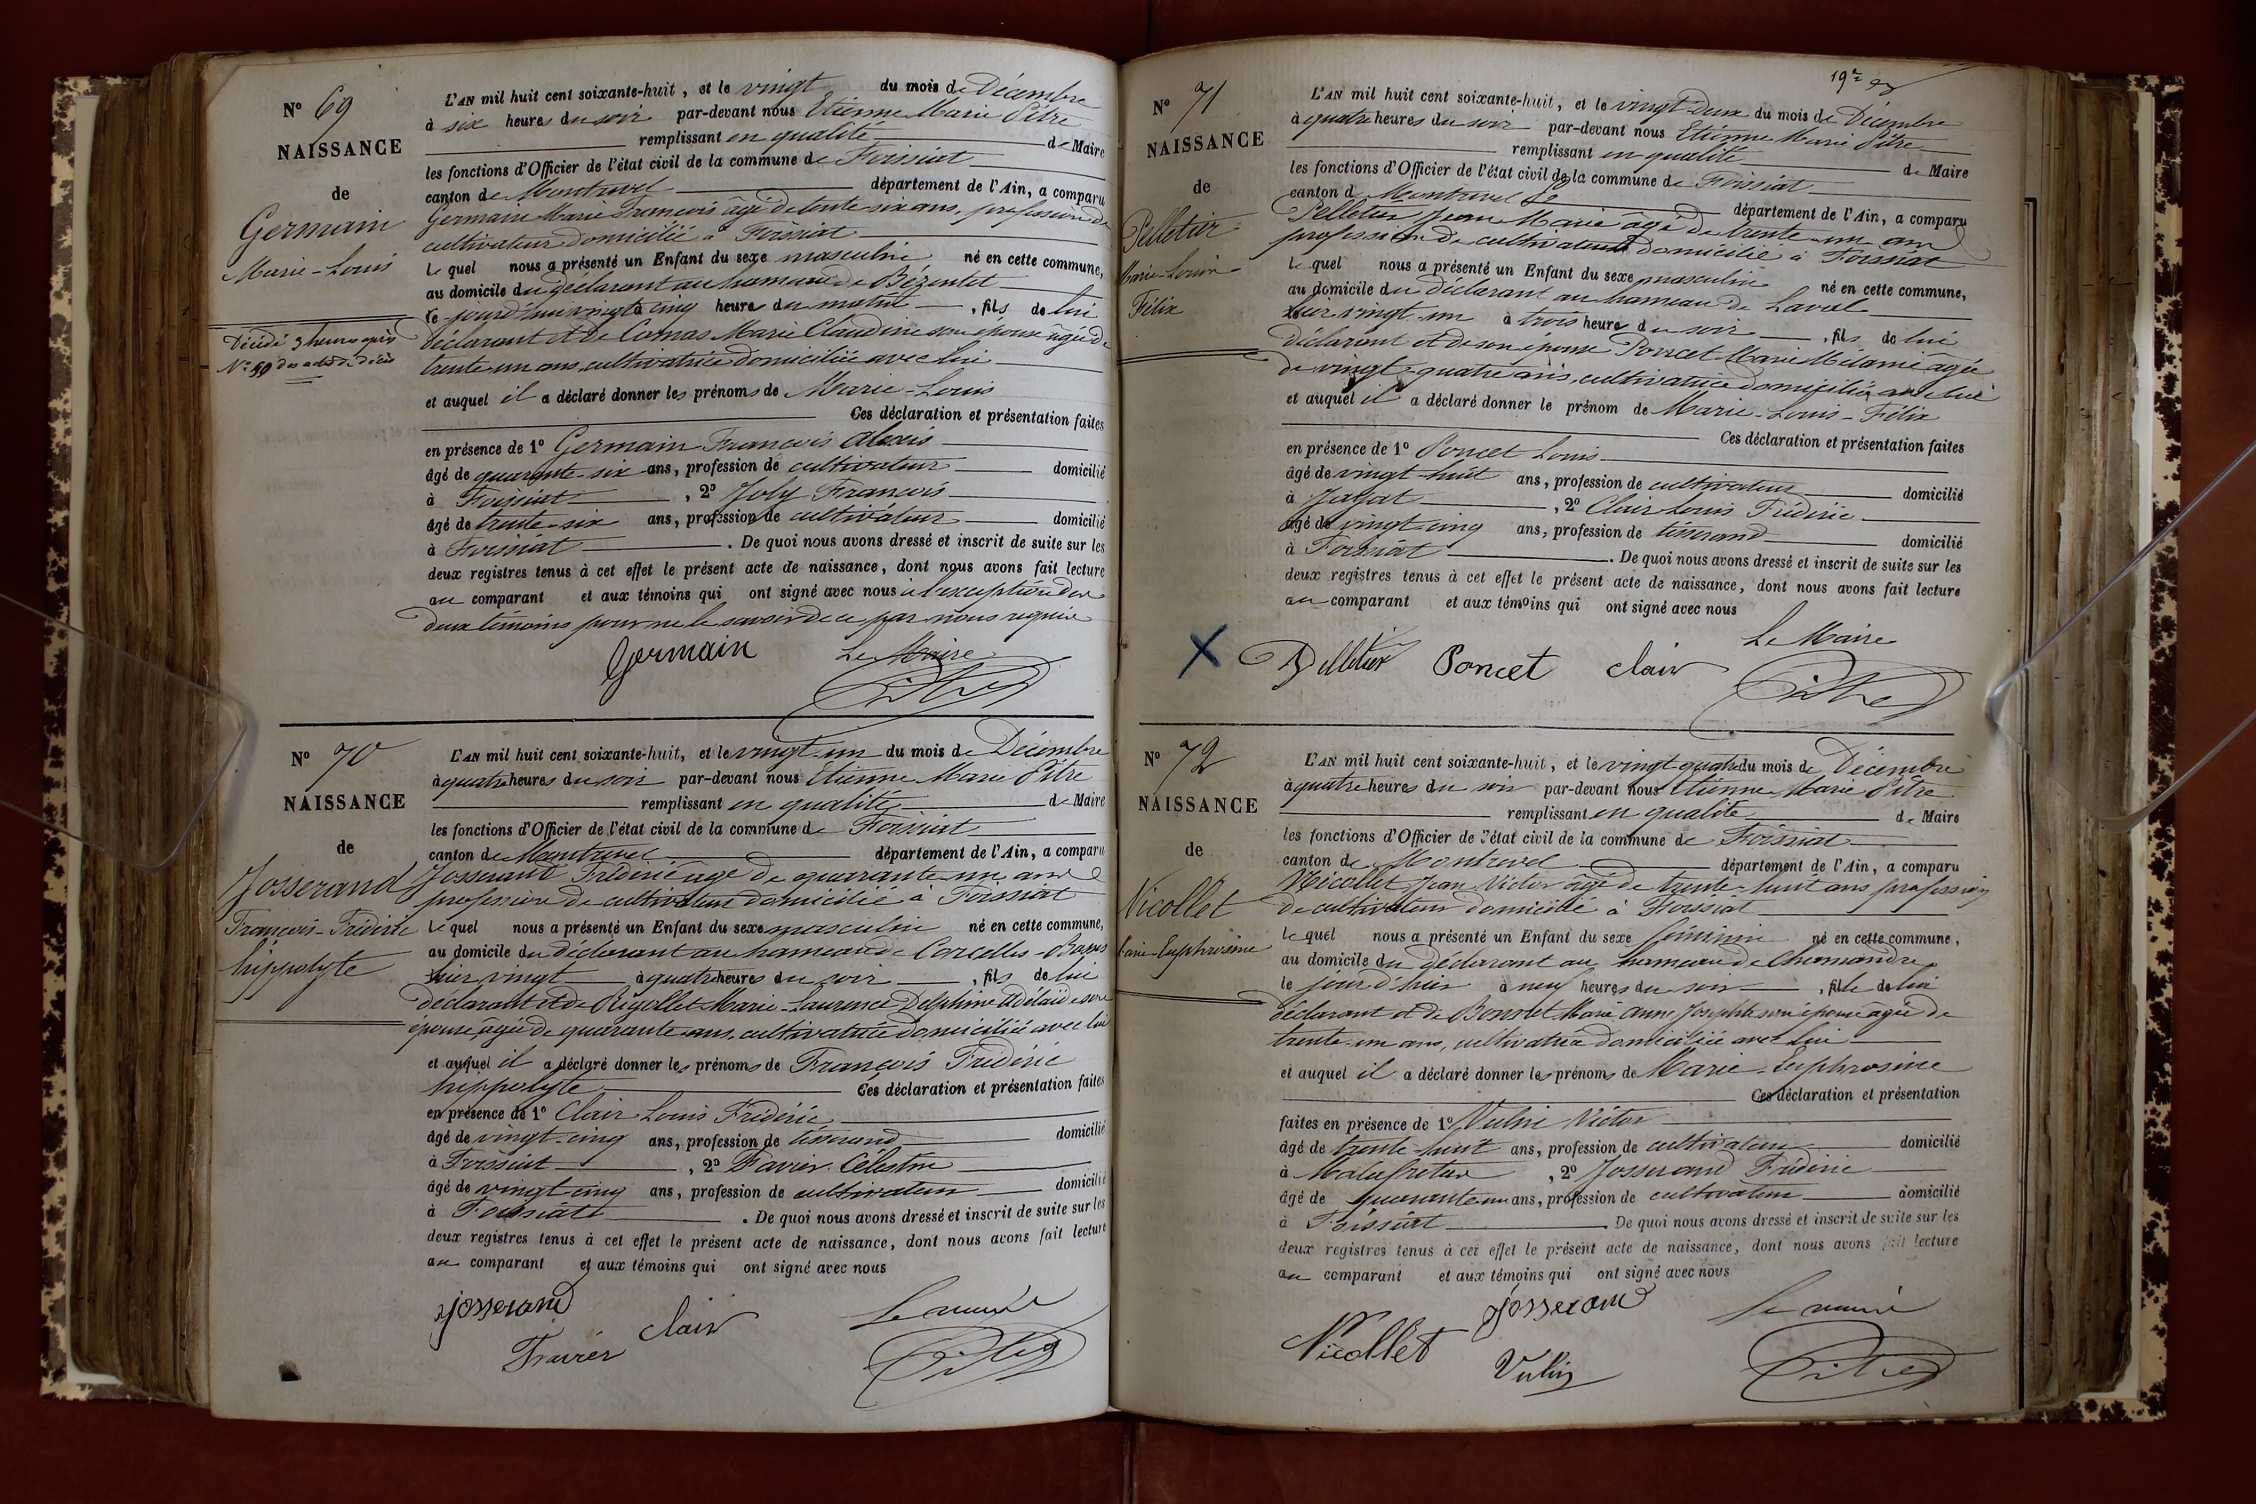 N° 69
NAISSANCE
de
Germain
Marie-Louis
Décédé 3 heures après
N° 59 des actes de décès
L'AN mil huit cent soixante-huit, et le vingt du mois de Décembre
à six heures du soir par-devant nous Etienne Marie Pitre
remplissant en qualité de Maire
les fonctions d'Officier de l'état civil de la commune de Foissiat
canton de Montrevel département de l'Ain, a comparu
Germain Marie François âgé de trente-six ans, profession de
cultivateur domicilié à Foissiat
Lequel nous a présenté un Enfant du sexe masculin né en cette commune,
au domicile du déclarant au hameau de Bézentet
ce jourd'hui vingt à cinq heures du matin, fils de lui
déclarant et de Comas Marie Claudine son épouse âgée de
trente un ans, cultivatrice domiciliée avec lui
et auquel il a déclaré donner les prénoms de Marie-Louis
Ces déclaration et présentation faites
en présence de 1° Germain François alexis
âgé de quarante-six ans, profession de cultivateur domicilié
à Foissiat, 2° Joly François
âgé de trente-six ans, profession de cultivateur domicilié
à Foissiat. De quoi nous avons dressé et inscrit de suite sur les
deux registres tenus à cet effet le présent acte de naissance, dont nous avons fait lecture
au comparant et aux témoins qui ont signé avec nous à l'exception des
deux témoins pour ne le savoir de ce par nous requis
Germain Le Maire
Pitre
N° 70
NAISSANCE
de
Josserand
François-Frédéric
hippolyte
L'AN mil huit cent soixante-huit, et le vingt-un du mois de Décembre
à quatre heures du soir par-devant nous Etienne Marie Pitre
remplissant en qualité de Maire
les fonctions d'Officier de l'état civil de la commune de Foissiat
canton de Montrevel département de l'Ain, a comparu
Josserand Frédéric âgé de quarante-un ans
profession de cultivateur domicilié à Foissiat
Lequel nous a présenté un Enfant du sexe masculin né en cette commune,
au domicile du déclarant au hameau de Corcelles-Basses
hier vingt à quatre heures du soir, fils de lui
déclarant et de Rigollet Marie-Laurence Delphine Adélaïde son
épouse, âgée de quarante ans, cultivatrice domiciliée avec lui
et auquel il a déclaré donner les prénoms de François Frédéric
hippolyte Ces déclaration et présentation faites
en présence de 1° Clair Louis Frédéric
âgé de vingt-cinq ans, profession de tisserand domicilié
à Foissiat, 2° Favier Célestin
âgé de vingt cinq ans, profession de cultivateur domicilié
à Foissiat. De quoi nous avons dressé et inscrit de suite sur les
deux registres tenus à cet effet le présent acte de naissance, dont nous avons fait lecture
au comparant et aux témoins qui ont signé avec nous
Josserand clair Le maire
Favier Pitre
19e
N° 71
NAISSANCE
de
Pelletier
Marie-Louis
Félix
L'AN mil huit cent soixante-huit, et le vingt-deux du mois de Décembre
à quatre heures du soir par-devant nous Etienne Marie Pitre
remplissant en qualité de Maire
les fonctions d'Officier de l'état civil de la commune de Foissiat
canton de Montrevel département de l'Ain, a comparu
Pelletier Jean Marie âgé de trente-un ans
profession de cultivateur domicilié à Foissiat
Lequel nous a présenté un Enfant du sexe masculin né en cette commune,
au domicile du déclarant au hameau de Laval
hier vingt-un à trois heures du soir, fils de lui
déclarant et de son épouse Poncet Marie Mélanie âgée
de vingt-quatre ans, cultivatrice domiciliée avec lui
et auquel il a déclaré donner le prénom de Marie-Louis-Félix
Ces déclaration et présentation faites
en présence de 1° Poncet Louis
âgé de vingt-huit ans, profession de cultivateur domicilié
à Jayat, 2° Clair Louis Frédéric
âgé de vingt-cinq ans, profession de tisserand domicilié
à Foissiat. De quoi nous avons dressé et inscrit de suite sur les
deux registres tenus à cet effet le présent acte de naissance, dont nous avons fait lecture
au comparant et aux témoins qui ont signé avec nous
Le Maire
X Pelletier Poncet clair Pitre
N° 72
NAISSANCE
de
Nicollet
Marie-Euphrosine
L'AN mil huit cent soixante-huit, et le vingt-quatre du mois de Décembre
à quatre heures du soir par-devant nous Etienne Marie Pitre
remplissant en qualité de Maire
les fonctions d'Officier de l'état civil de la commune de Foissiat
canton de Montrevel département de l'Ain, a comparu
Nicollet Jean Victor âgé de trente-huit ans profession
de cultivateur domicilié à Foissiat
Lequel nous a présenté un Enfant du sexe féminin né en cette commune,
au domicile du déclarant au hameau de Chamandre
le jour d'hier à neuf heures du soir, fille de lui
déclarant et de Bonnet Marie Anne Josephte son épouse âgée de
trente-un ans, cultivatrice domiciliée avec lui
et auquel il a déclaré donner les prénoms de Marie-Euphrosine
Ces déclaration et présentation
faites en présence de 1° Vulin Victor
âgé de trente-huit ans, profession de cultivateur domicilié
à Malafretaz, 2° Josserand Frédéric
âgé de quarante un ans, profession de cultivateur domicilié
à Foissiat. De quoi nous avons dressé et inscrit de suite sur les
deux registres tenus à cet effet le présent acte de naissance, dont nous avons fait lecture
au comparant et aux témoins qui ont signé avec nous
Josserand Le maire
Nicollet Vulin Pitre